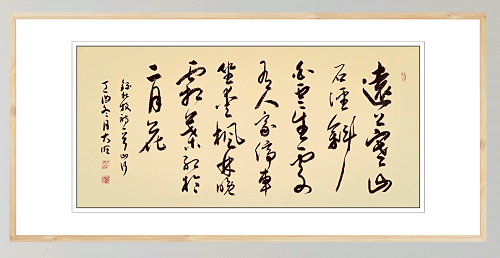 遠上寒山
石徑斜
白雲生處
有人家停車
坐愛楓林晚
霜葉紅於
二月花
錄杜牧詩一首山行
丁酉冬月大